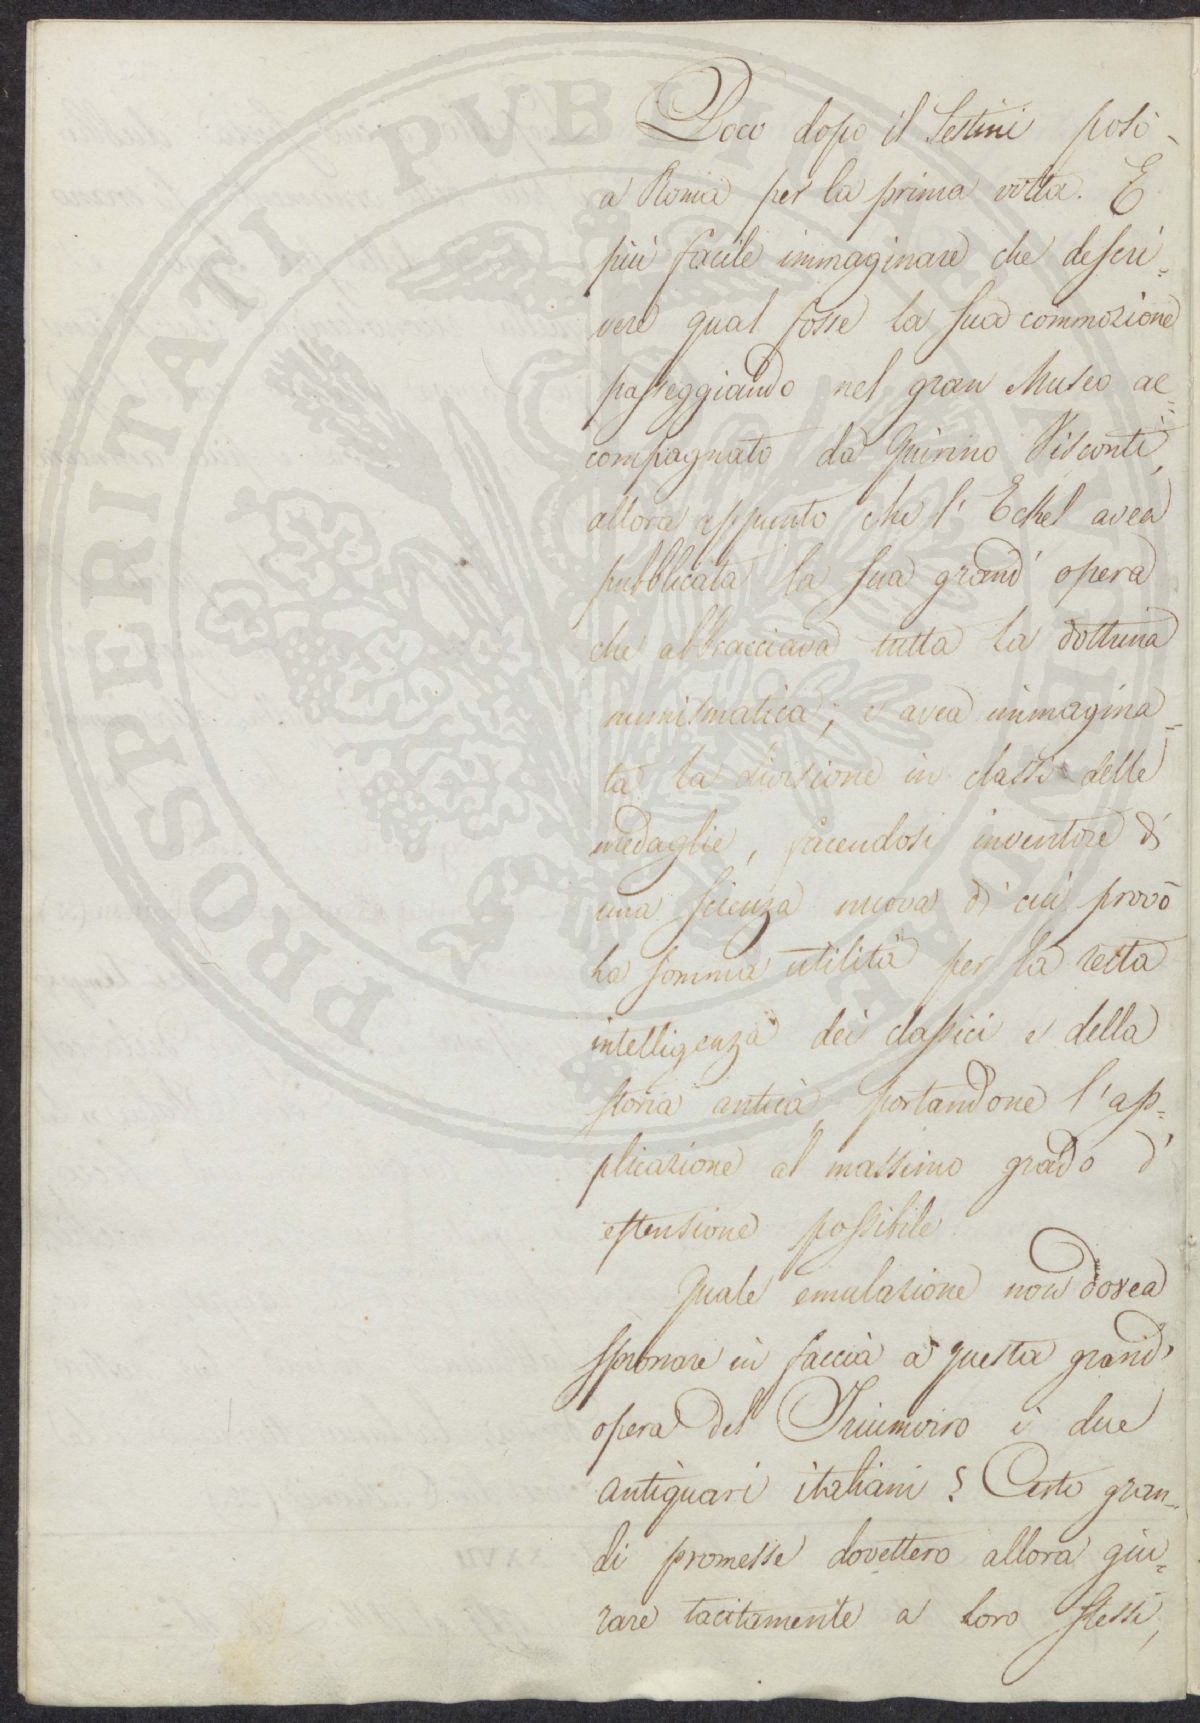 Poco dopo il Sestini posò
a Roma per la prima volta. È
più facile immaginare che descri=
vere qual fosse la sua commozione
passeggiando nel gran Museo ac=
compagnato da Quirino Visconti,
allora appunto che l' Eckel avea
pubblicata la sua grand' opera
che abbracciava tutta la dottrina
numismatica; e avea immagina=
ta la divisione in classi delle
medaglie, facendosi inventore di
una scienza nuova di cui provò
la somma utilità per la retta
intelligenza dei classici e della
storia antica, portandone l'ap=
plicazione al massimo grado d'
estensione possibile.
Quale emulazione non dovea
spronare in faccia a questa grand'
opera del Triumviro i due
antiquari italiani? Certo gran=
di promesse dovettero allora giu=
rare tacitamente a loro stessi,
PROSPERITATI PUBLICAE AUGENDAE